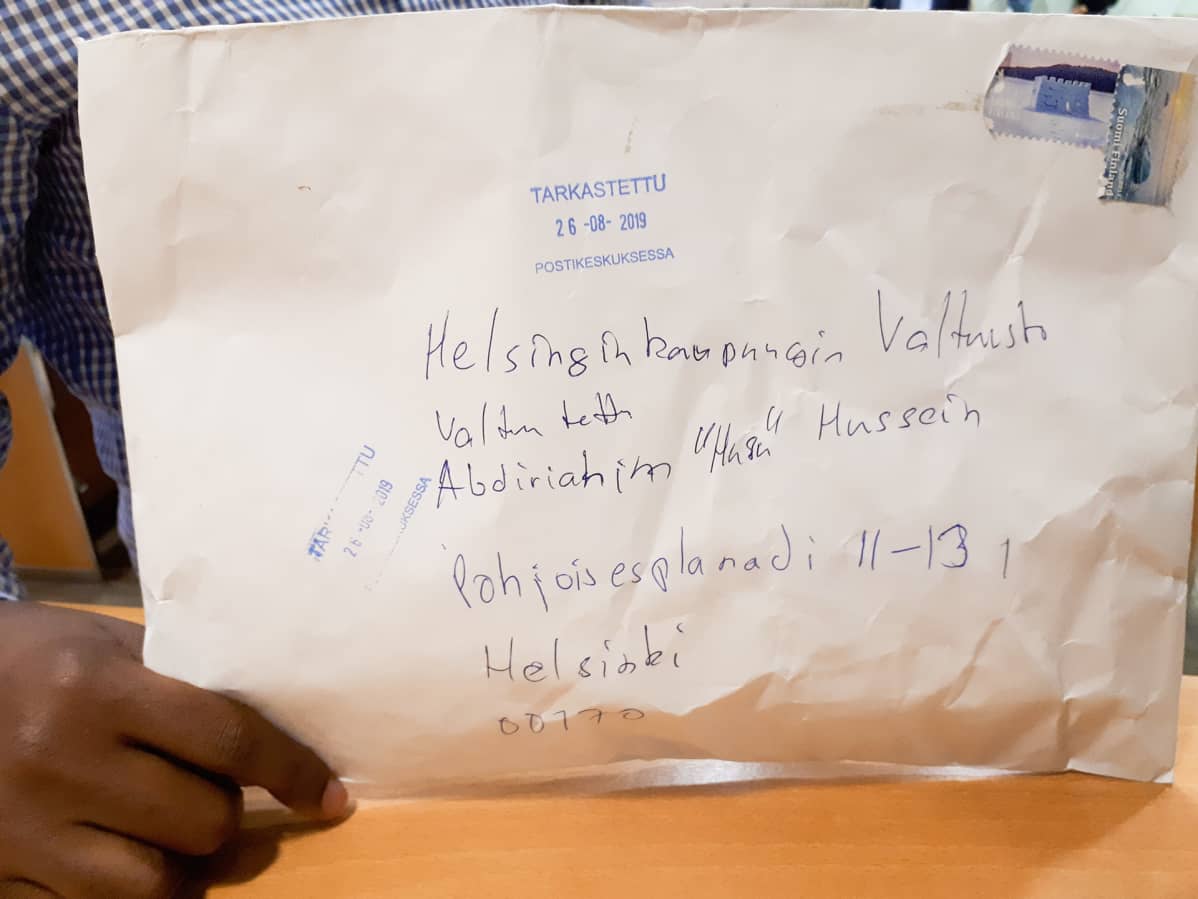 Suomi Finland
TARKASTETTU
26 -08- 2019
POSTIKESKUKSESSA
Helsinginkaupungin Valtuusto
Valtuutettu
Abdiriahim "Husu" Hussein
Pohjoisesplanadi 11-13 1
Helsinki
00170
TAR TTU
26 -08- 2019
UKSESSA